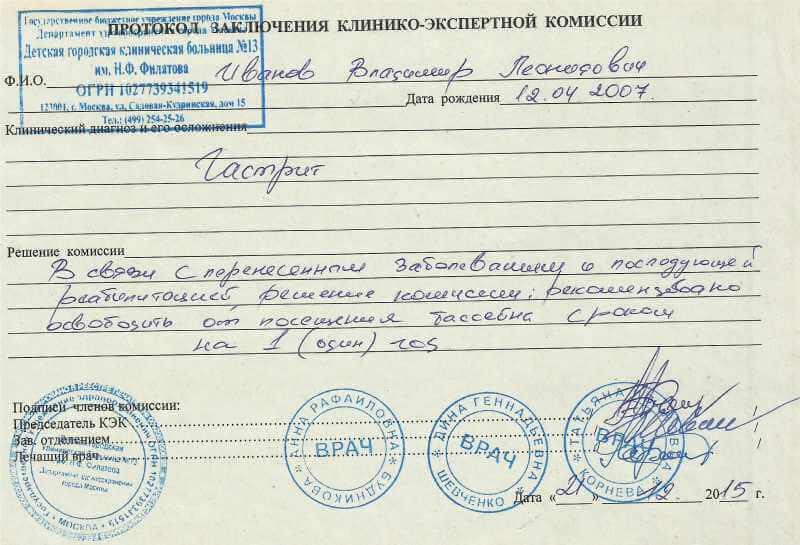 Государственное бюджетное учреждение города Москвы
Департамент здравоохранения города Москвы
Детская городская клиническая больница №13
им. Н.Ф. Филатова
ОГРН 1027739341519
123001, г. Москва, ул. Садовая-Кудринская, дом 15
Тел.: (499) 254-25-26
ПРОТОКОЛ ЗАКЛЮЧЕНИЯ КЛИНИКО-ЭКСПЕРТНОЙ КОМИССИИ
Ф.И.О. Иванов Владимир Леонидович
Дата рождения 12.04 2007.
Клинический диагноз и его осложнения
Гастрит
Решение комиссии
В связи с перенесенным заболеванием и последующей
реабилитацией, решение комиссии: рекомендовано
освободить от посещения бассейна сроком
на 1 (один) год
Подписи членов комиссии:
Председатель КЭК
Зав. отделением
Лечащий врач
АННА РАФАИЛОВНА
ВРАЧ
БУДНИКОВА
ДИНА ГЕННАДЬЕВНА
ВРАЧ
ШЕВЧЕНКО
ТАТЬЯНА
ВРАЧ
КОРНЕВА
ОГРН 1027739341519
МОСКВА
Дата «21» 12 2015 г.